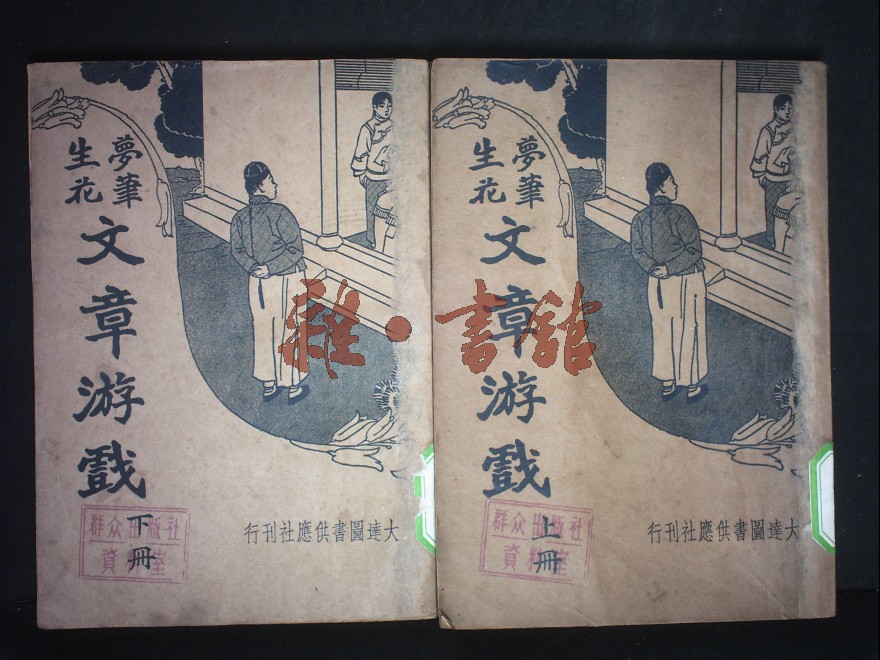 夢筆
生花
文章游戲
下冊
群众出版社
資料室
大達圖書供應社刊行
夢筆
生花
文章游戲
上冊
群众出版社
資料室
大達圖書供應社刊行
雜·書館